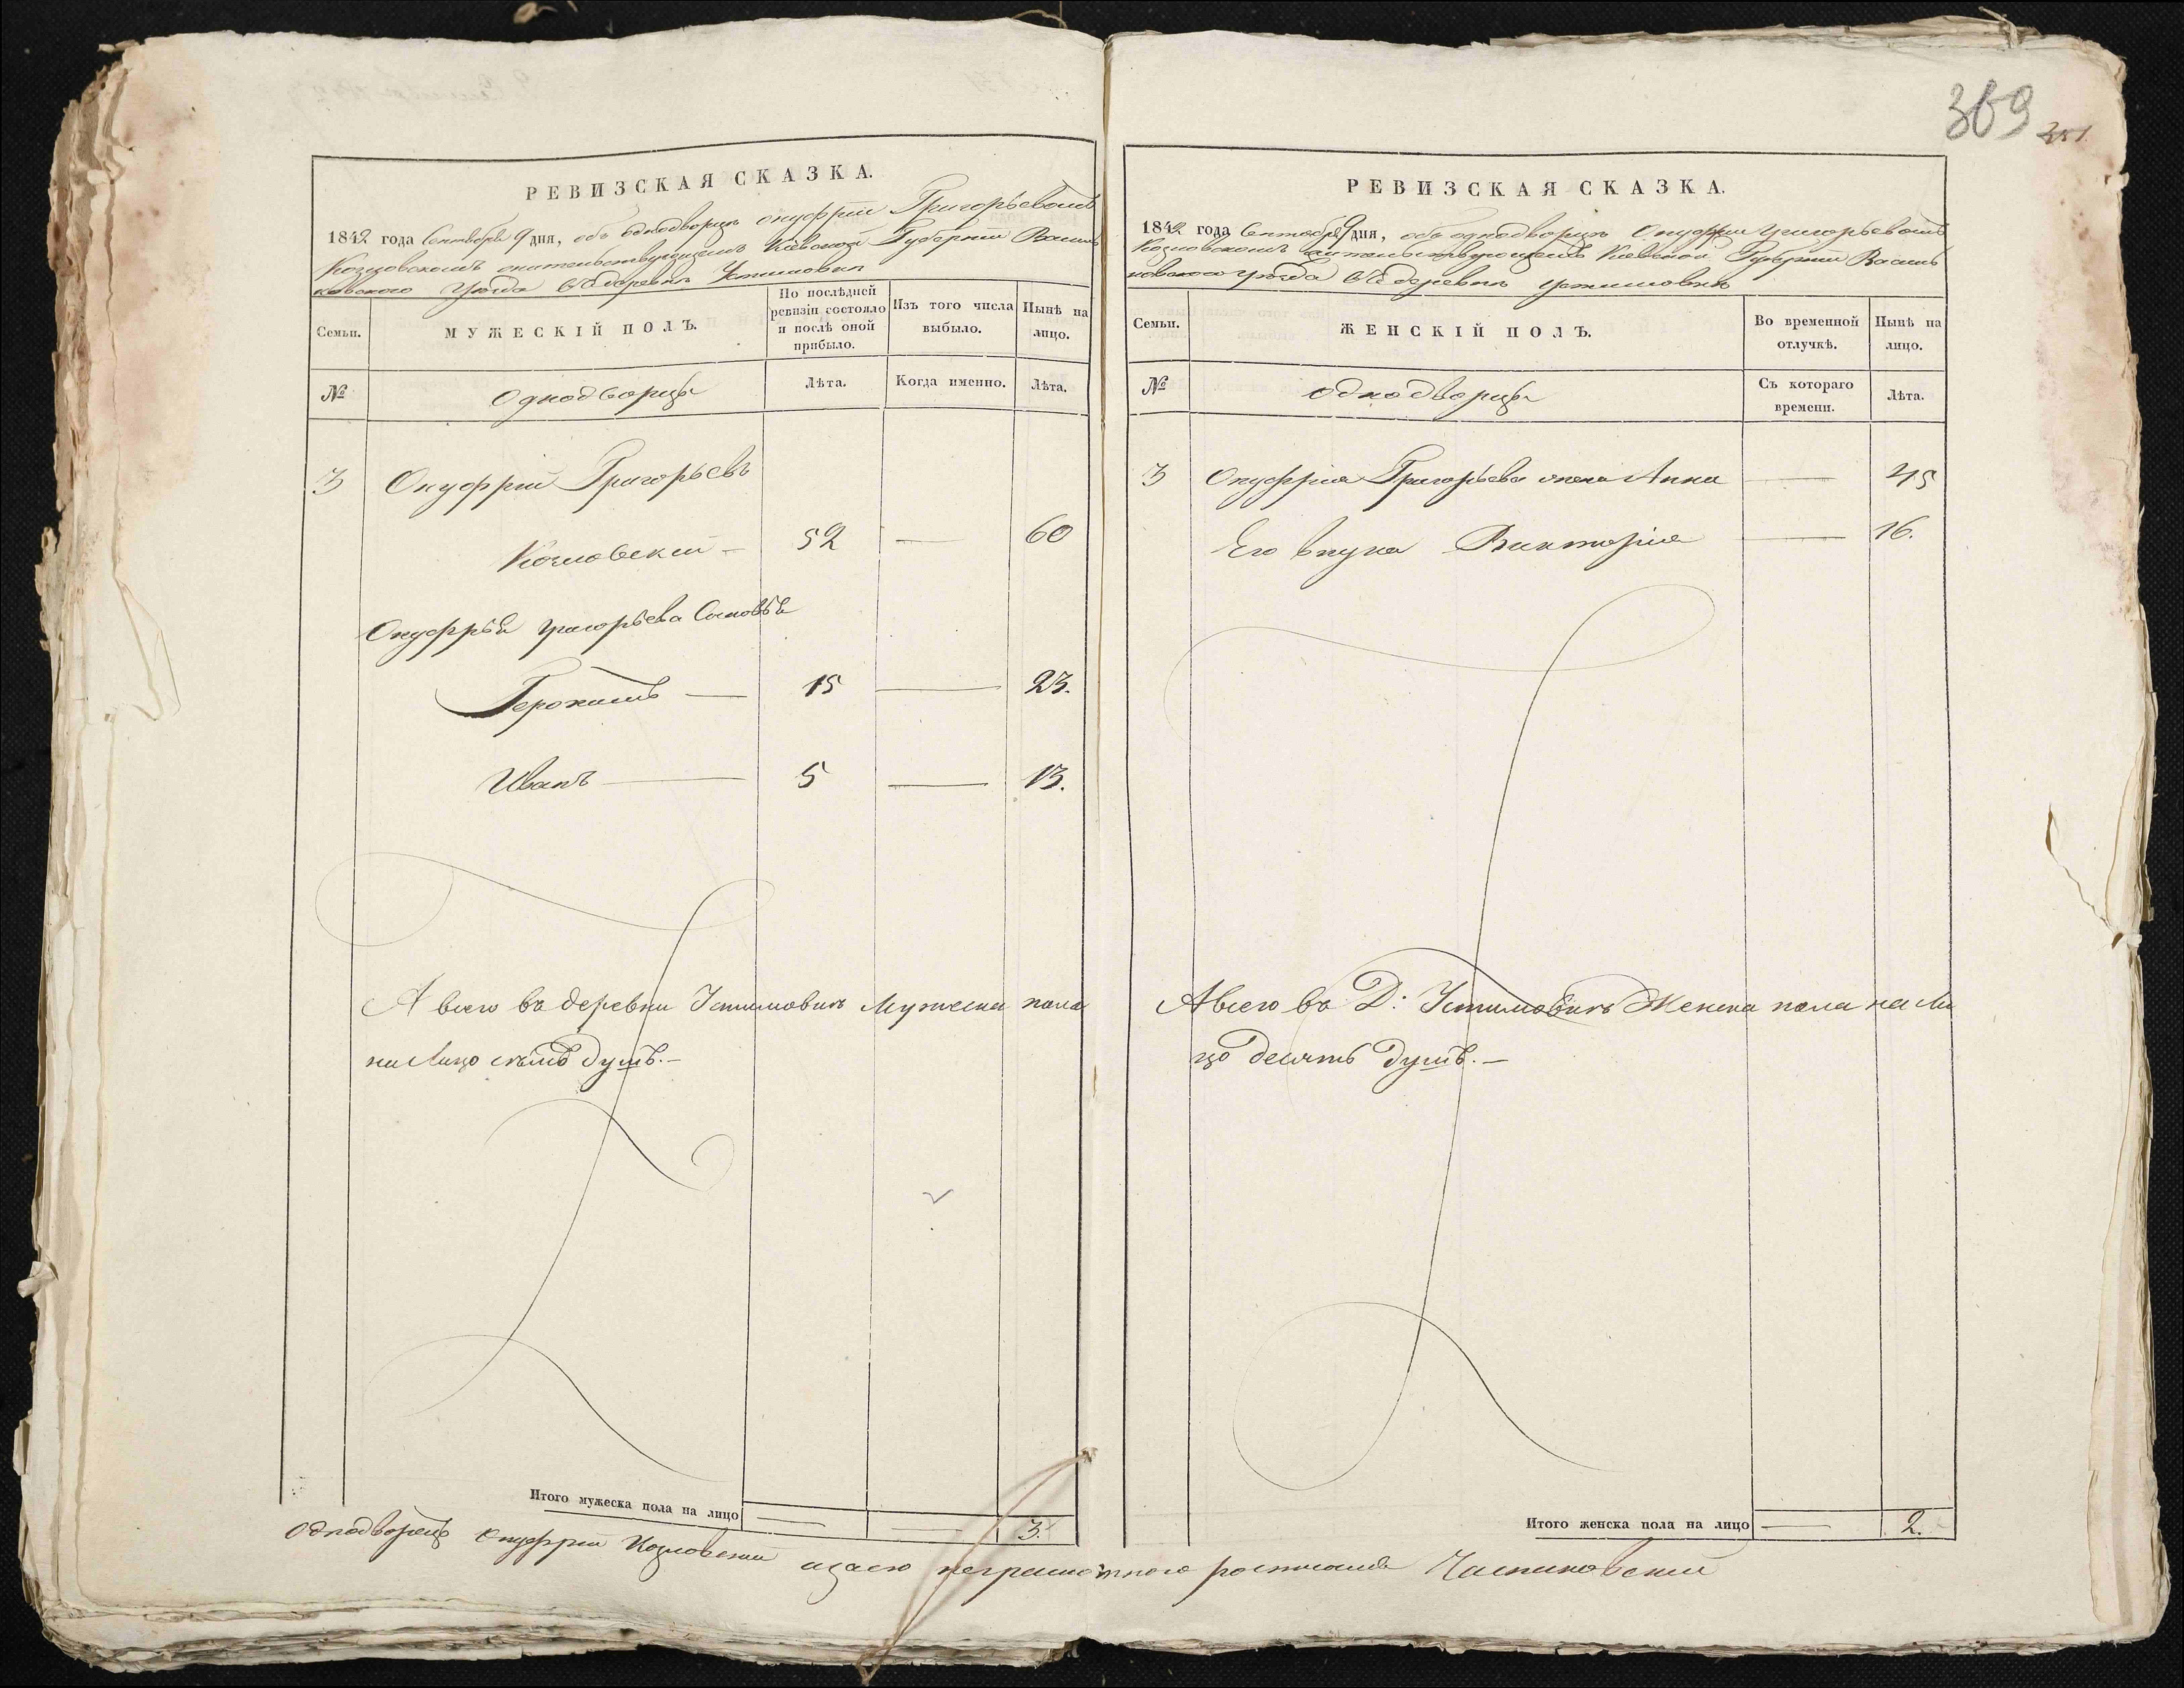 369 351.
РЕВИЗСКАЯ СКАЗКА.
1842 года Сентября 9 дня, объ однодворцѣ Онуфріи Григорьевомъ
Козловскомъ жительствующемъ Кіевской Губерніи Василь
ковскаго Уѣзда въ деревнѣ Устимовкѣ
Семьи.
МУЖЕСКІЙ ПОЛЪ.
По послѣдней ревизіи состояло и послѣ оной прибыло.
Изъ того числа выбыло.
Нынѣ на лицо.
№
Однодворцы
Лѣта.
Когда именно.
Лѣта.
3 Онуфрій Григорьевъ
Козловскій — 52 — 60
Онуфрія Григорьева Сыновья
Геронимъ — 15 — 23.
Иванъ — 5 — 13.
А всего въ деревни Устимовкѣ Мужеска пола
на Лицо семь душъ. —
Итого мужеска пола на лицо — — 3.
РЕВИЗСКАЯ СКАЗКА.
1842 года Сентября 9 дня, объ однодворцѣ Онуфріи Григорьевомъ
Козловскомъ жительствующемъ Кіевской Губерніи Василь
ковскаго Уѣзда въ деревнѣ Устимовкѣ
Семьи.
ЖЕНСКІЙ ПОЛЪ.
Во временной отлучкѣ.
Нынѣ на лицо.
№
Однодворцы
Съ котораго времени.
Лѣта.
3 Онуфрія Григорьева жена Анна — 45
Его внука Викторія — 16.
А всего въ Д: Устимовкѣ Женска пола на Ли
цо десять душъ. —
Итого женска пола на лицо — 2.
Однодворецъ Онуфрій Козловскій азаего неграмотного росписался